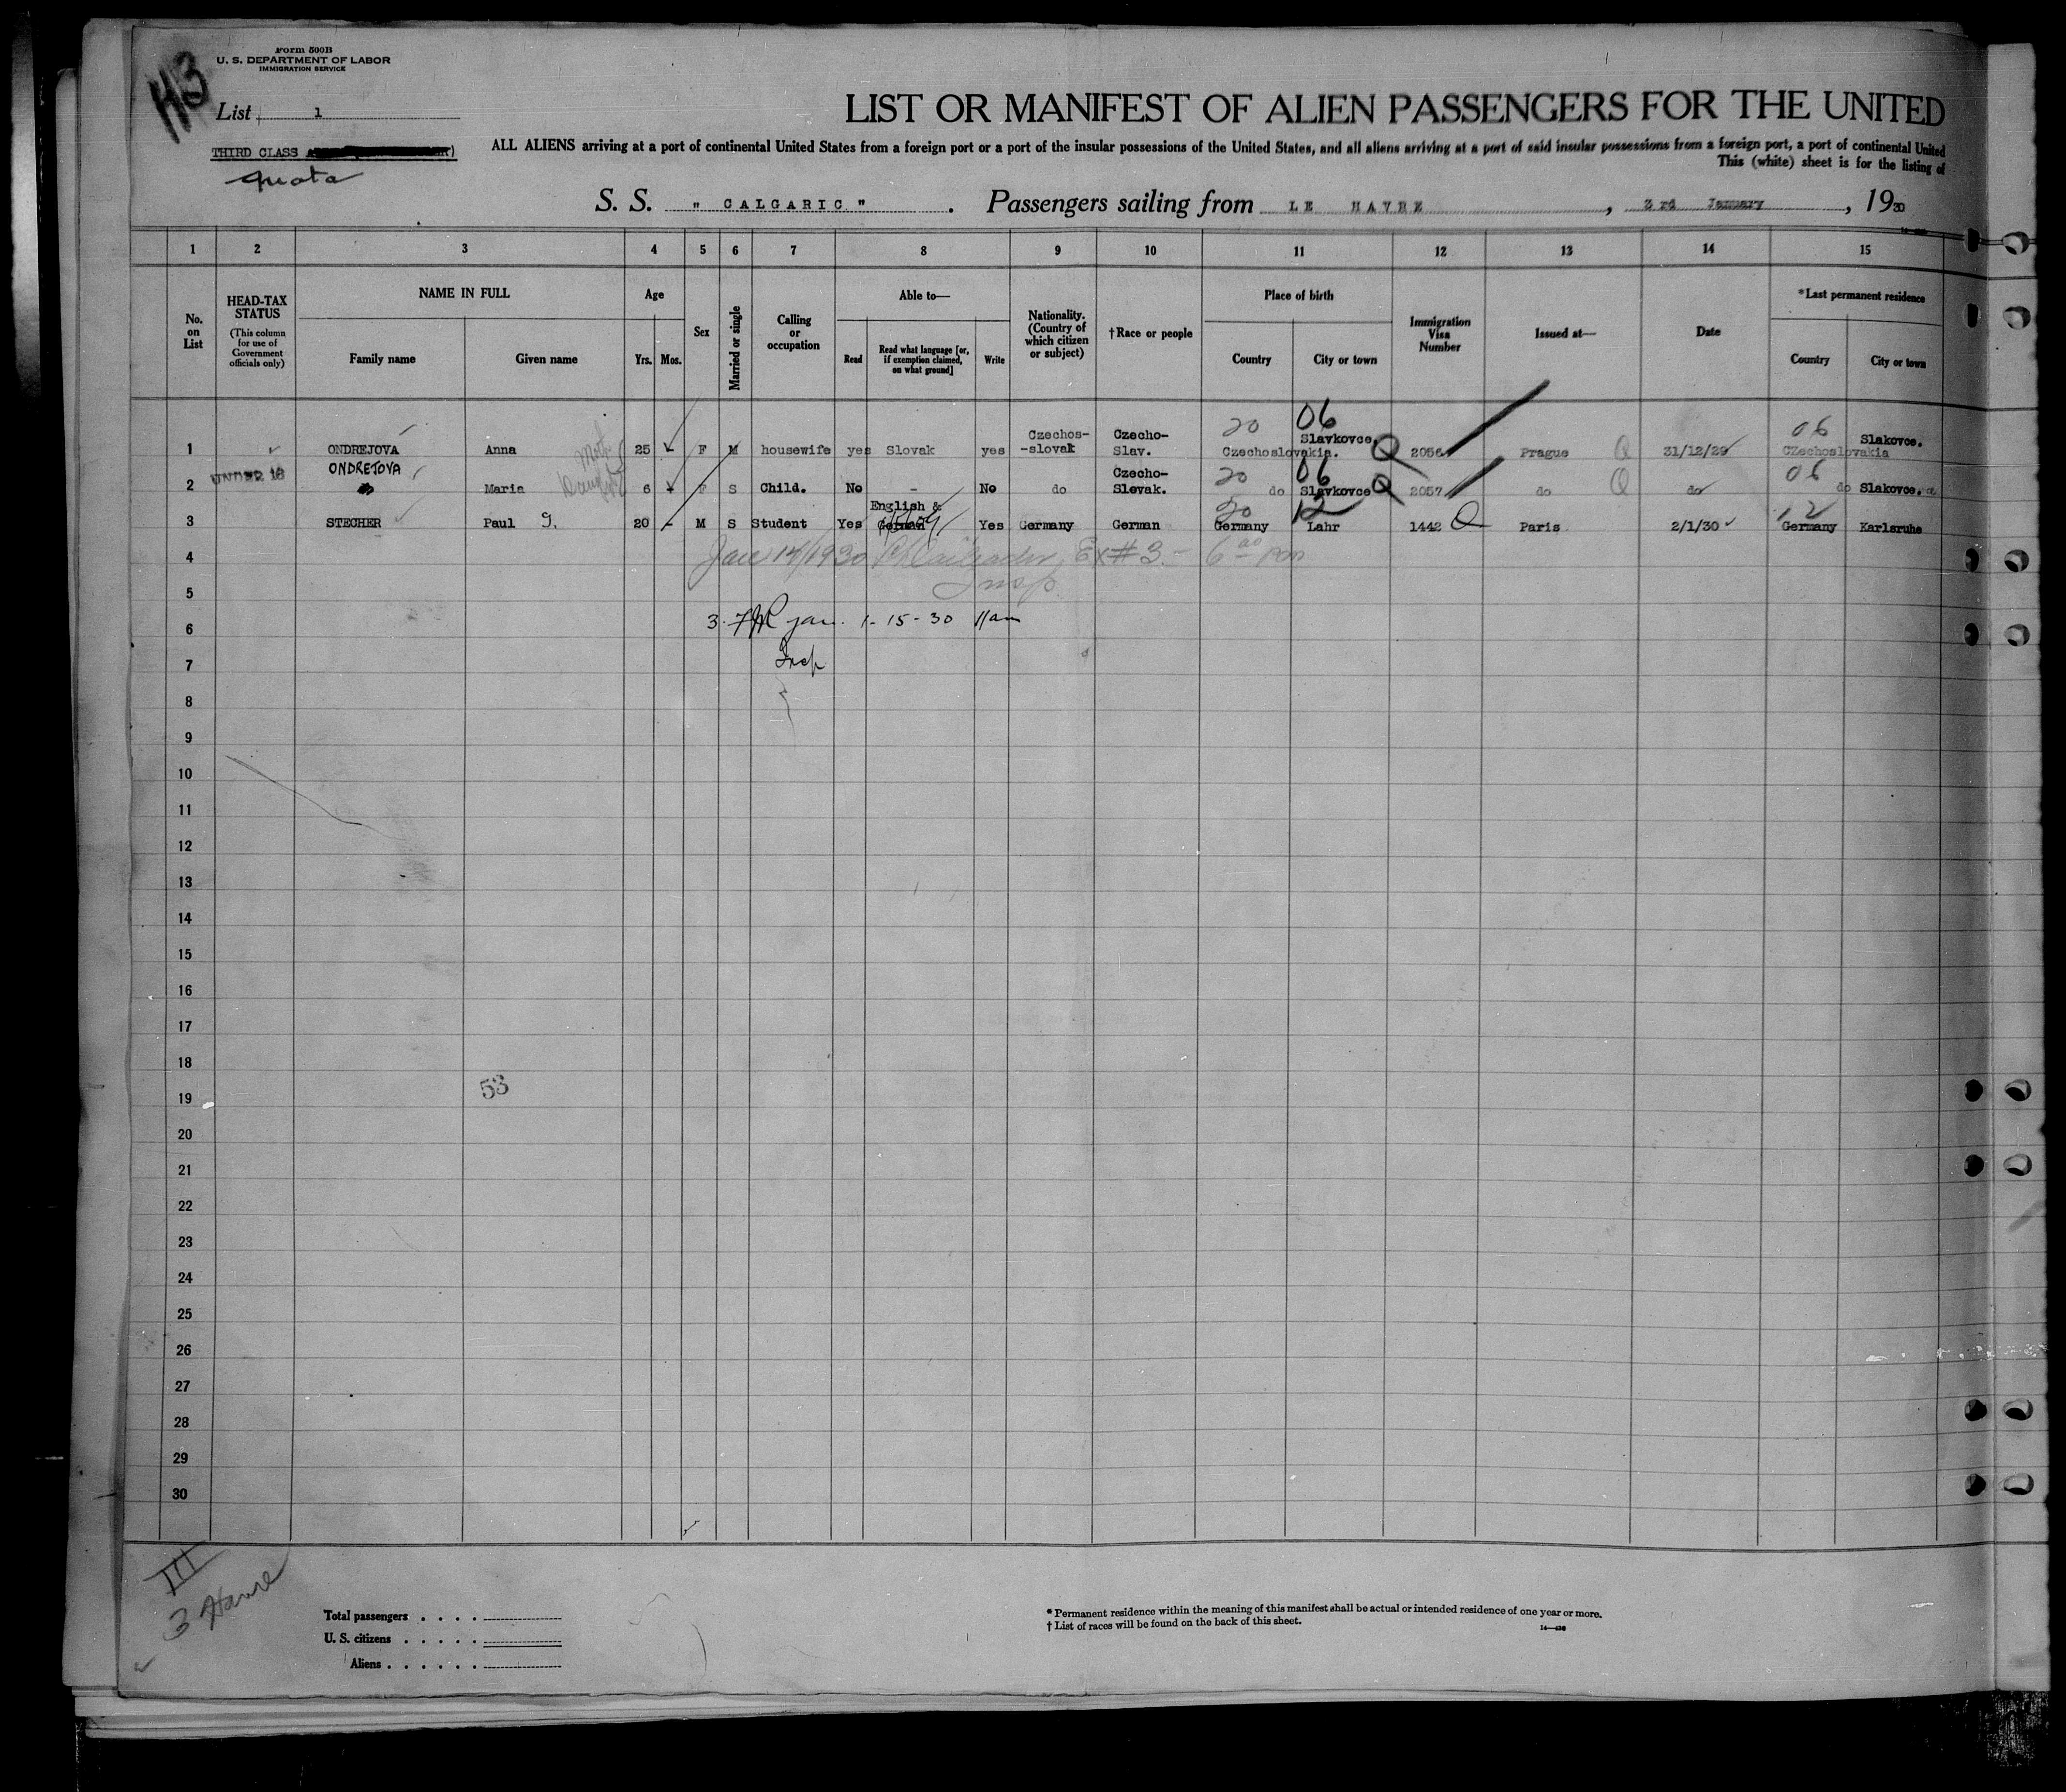 Form 500B
U. S. DEPARTMENT OF LABOR
IMMIGRATION SERVICE
List 1
THIRD CLASS
Quota
LIST OR MANIFEST OF ALIEN PASSENGERS FOR THE UNITED
ALL ALIENS arriving at a port of continental United States from a foreign port or a port of the insular possessions of the United States, and all aliens arriving at a port of said insular possessions from a foreign port, a port of continental United
This (white) sheet is for the listing of
S. S. " CALGARIC " . Passengers sailing from LE HAVRE , 3rd January , 1930
1 2 3 4 5 6 7 8 9 10 11 12 13 14 15
No. on List
HEAD-TAX STATUS (This column for use of Government officials only)
NAME IN FULL
Family name Given name
Age
Yrs. Mos.
Sex
Married or single
Calling or occupation
Able to—
Read Read what language [or, if exemption claimed, on what ground] Write
Nationality. (Country of which citizen or subject)
†Race or people
Place of birth
Country City or town
Immigration Visa Number
Issued at—
Date
*Last permanent residence
Country City or town
20 06 06
1 ONDREJOVA Anna 25 - F M housewife yes Slovak yes Czechos-slovak Czecho-Slav. Czechoslovakia. Slavkovce. Q 2056 Prague Q 31/12/29 CZechoslovakia Slakovce.
20 06 06
2 UNDER 16 ONDREJOVA Maria 6 F S Child. No - No do Czecho-Slovak. do Slavkovce Q 2057 do Q do do Slakovce.
20 12 12
3 STECHER Paul G. 20 - M S Student Yes English & German Yes Germany German Germany Lahr 1442 Q Paris 2/1/30 Germany Karlsruhe
4 Jan 14/1930 Ex #3 - 6 00 pm
5 Insp
6 1-15-30 11am
7 Insp
8
9
10
11
12
13
14
15
16
17
18
53
19
20
21
22
23
24
25
26
27
28
29
30
III
3 Havre
Total passengers . . . .
U. S. citizens . . . . .
Aliens . . . . . .
* Permanent residence within the meaning of this manifest shall be actual or intended residence of one year or more.
† List of races will be found on the back of this sheet.